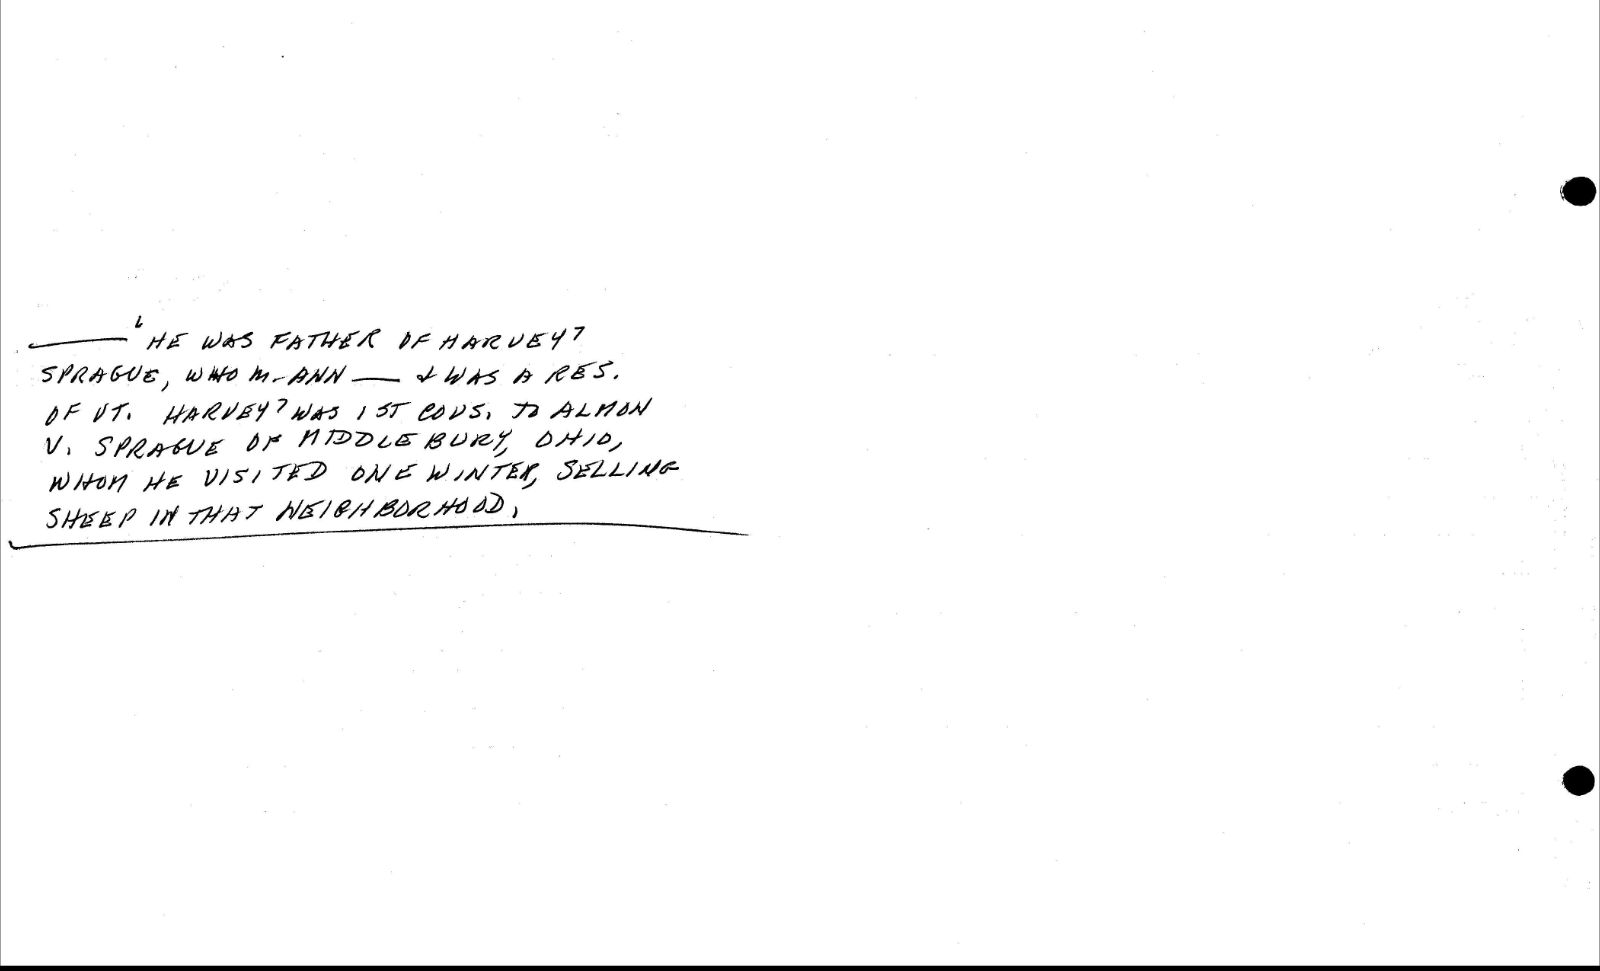 ——⁶ HE WAS FATHER OF HARVEY⁷
SPRAGUE, WHO M. ANN —— & WAS A RES.
OF VT. HARVEY⁷ WAS 1ST COUS. TO ALMON
V. SPRAGUE OF MIDDLEBURY, OHIO,
WHOM HE VISITED ONE WINTER, SELLING
SHEEP IN THAT NEIGHBORHOOD.